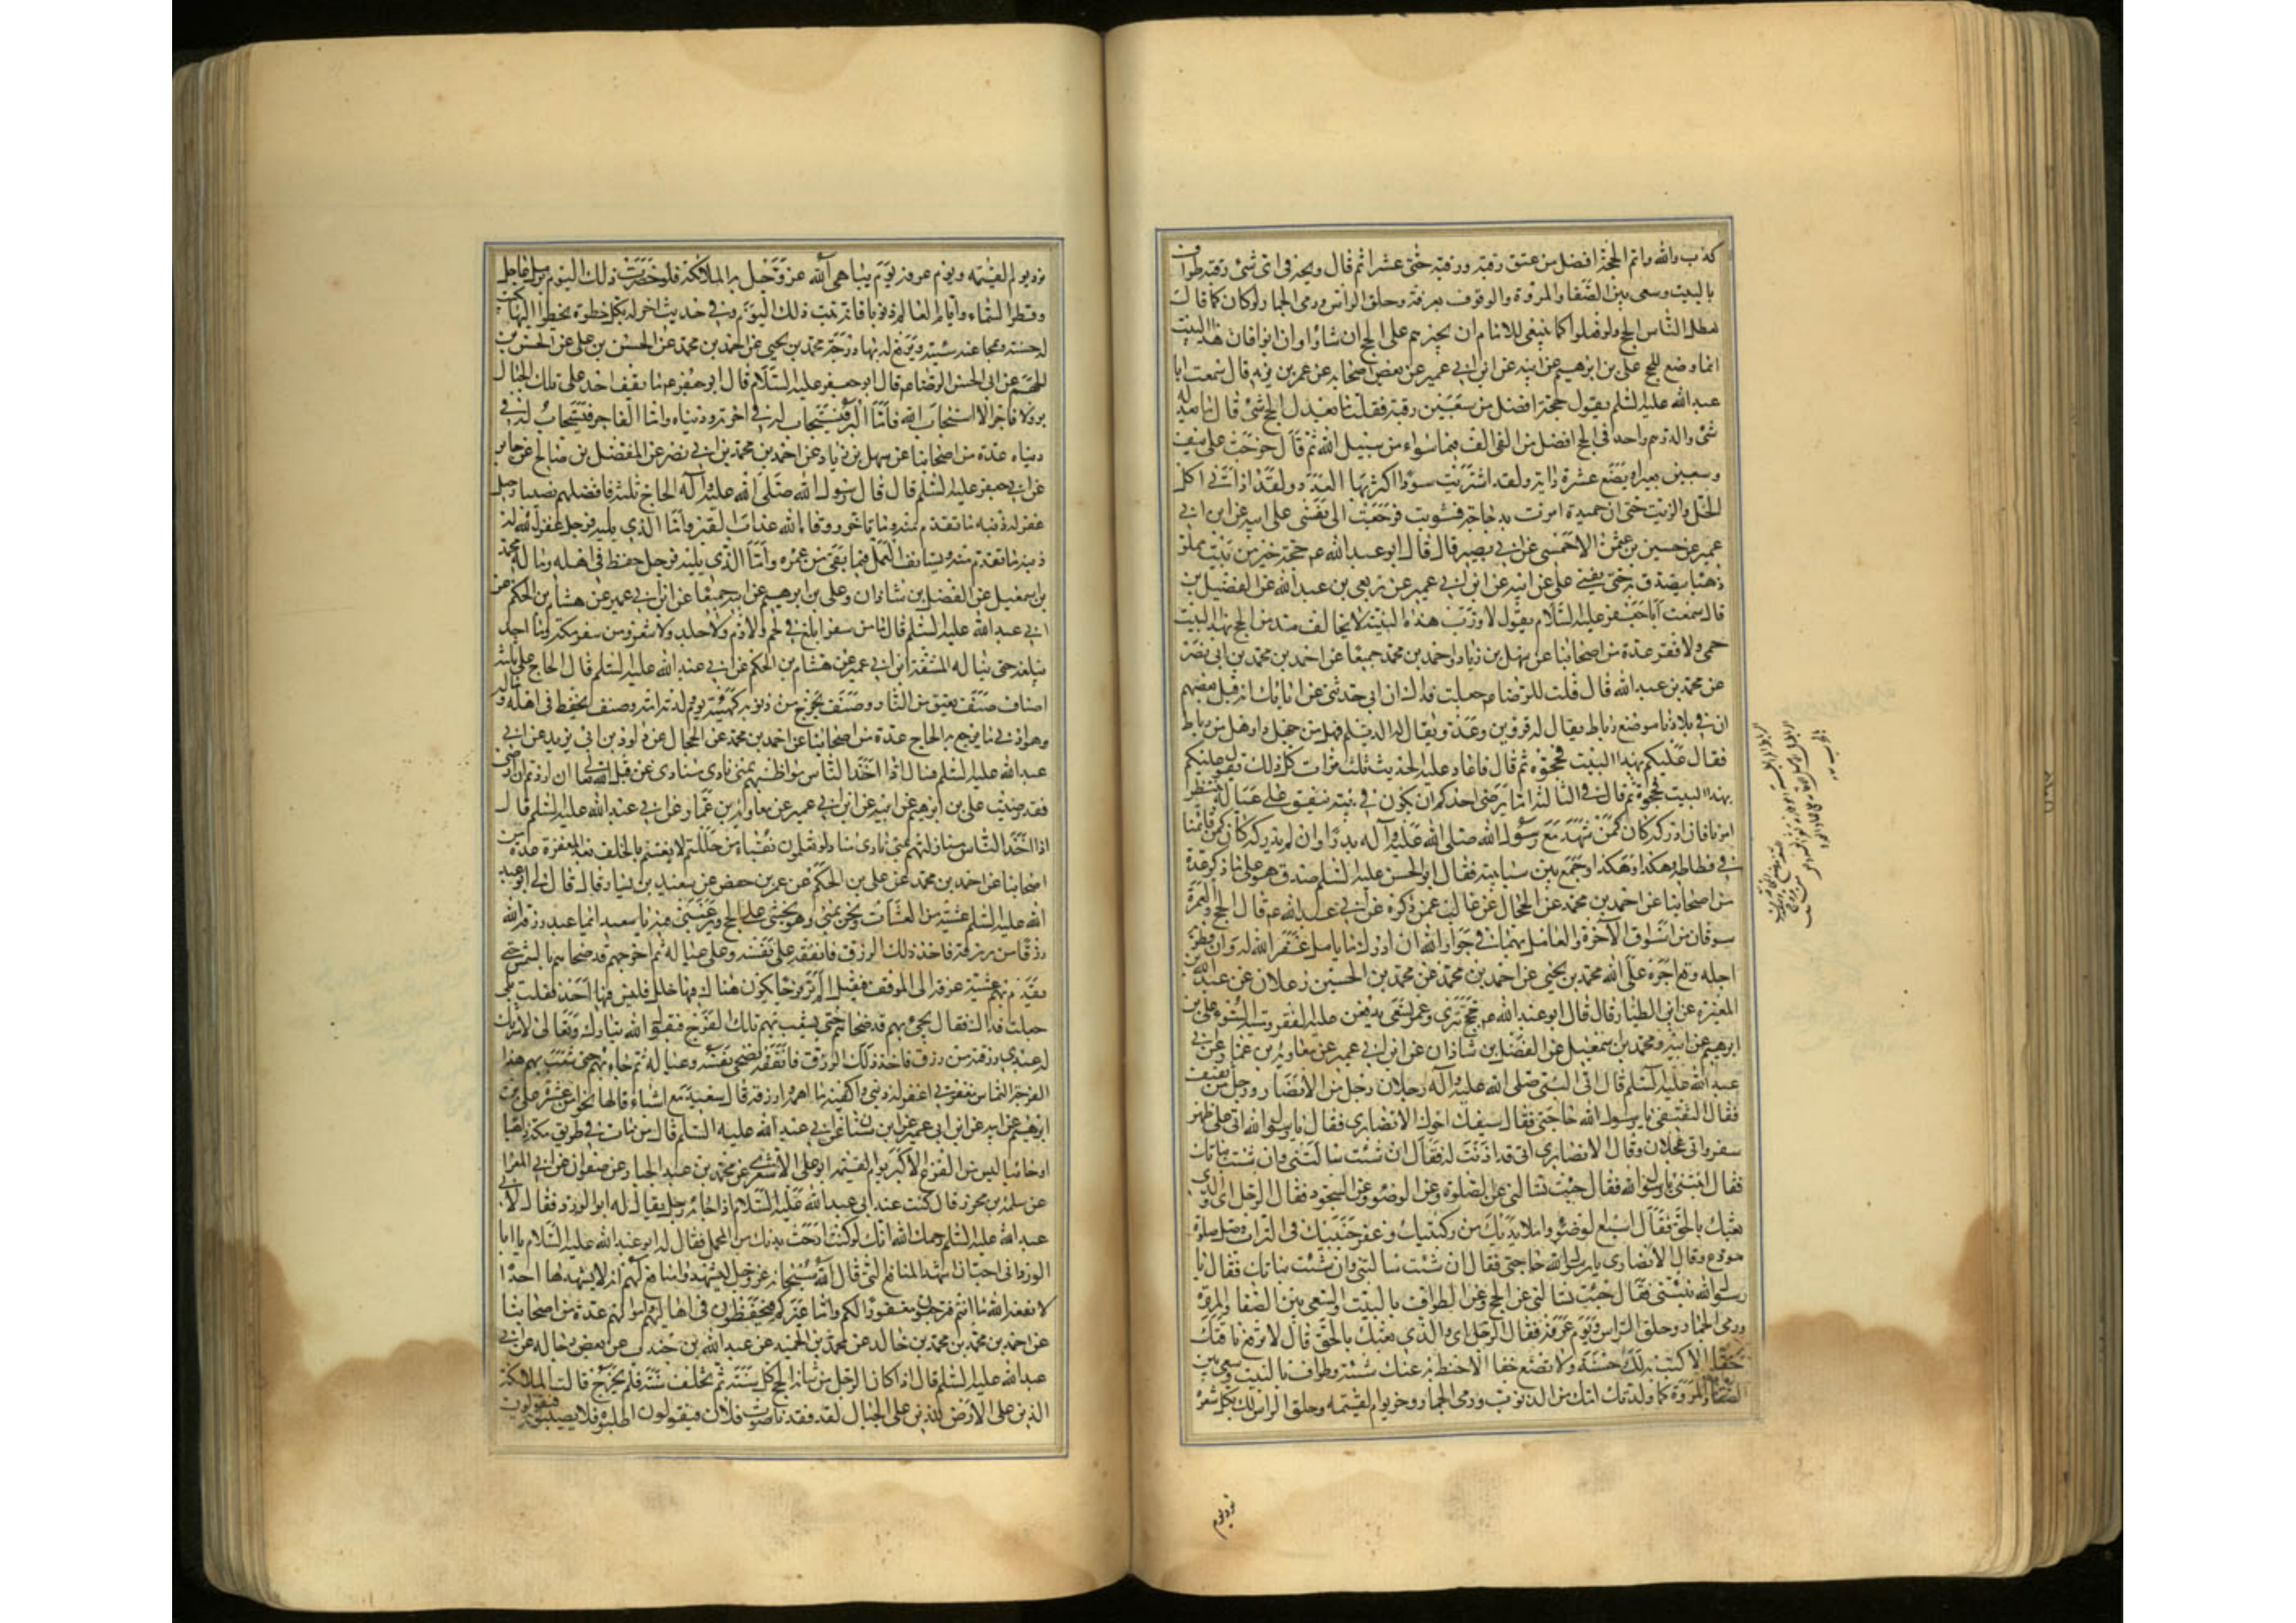 كذب والله واثم الحجة افضل من عتق رقبة ورقبة حتى عشرا ثم قال ويحه فى اى شئ رقبة طواف
بالبيت وسعى بين الصفا والمروة والوقوف بعرفة وحلق الراس ورمى الجمار ولو كان كما قال
لعطل الناس الحج ولو فعلوا كما ينبغى للامام ان يجبرهم على الحج ان شاؤا وان ابوا فان هذا البيت
انما وضع للحج على بن ابرهيم عن ابيه عن ابن ابى عمير عن بعض اصحابه عن عمر بن يزيد قال سمعت ابا
عبد الله عليه السلم يقول حجة افضل من سبعين رقبة فقلت ما يعدل الحج شئ قال ما يعدله
شئ والدرهم واحد فى الحج افضل من الفى الف فيما سواه من سبيل الله ثم قال خرجت على نيف
وسبعين بعيرا وبضع عشرة دابة ولقد اشتريت سودا اكثر بها العدد ولقد اذانى اكل
الخل والزيت حتى ان حميدة امرت بدجاجة فشويت فرجعت الى نفسى على عن ابيه عن ابن ابى
عمير عن حسين بن عثمن الاحمسى عن ابى بصير قال قال ابو عبد الله ع حجة خير من بيت مملو
ذهبا يتصدق به حتى يفنى على عن ابيه عن ابن ابى عمير عن ربعى بن عبد الله عن الفضيل بن
قال سمعت ابا جعفر عليه السلام يقول لا ورب هذه البنية لا يخالف مدمن الحج بهذا البيت
حمى ولا فقر عدة من اصحابنا عن سهل بن زياد واحمد بن محمد جميعا عن احمد بن محمد بن ابى نصر
عن محمد بن عبد الله قال قلت للرضا ع جعلت فداك ان ابى حدثنى عن ابائك انه قيل لبعضهم
ان فى بلادنا موضع رباط يقال له قزوين وعدو يقال له الديلم فهل من جهاد او هل من رباط
فقال عليكم بهذا البيت فحجوه ثم قال فاعاد عليه الحديث ثلث مرات كل ذلك يقول عليكم
بهذا البيت فحجوه ثم قال فى الثالثة اما يرضى احدكم ان يكون فى بيته ينفق على عياله ينتظر
امرنا فان ادركه كان كمن شهد مع رسول الله صلى الله عليه وآله بدرا وان لم يدركه كان كمن قائمنا
فى فسطاطه هكذا وهكذا وجمع بين سبابتيه فقال ابو الحسن عليه السلم صدق هو على ما ذكر عدة
من اصحابنا عن احمد بن محمد عن الحجال عن غالب عمن ذكره عن ابى عبد الله ع قال الحج والعمرة
سوقان من اسواق الآخرة والعامل بهما فى جوار الله ان ادرك ما يامل غفر الله له وان قصر به
اجله وقع اجره على الله محمد بن يحيى عن احمد بن محمد عن محمد بن الحسين زعلان عن عبد الله بن
المغيرة عن ابن الطيار قال قال ابو عبد الله ع حجج تترى وعمر تسعى يدفعن عيلة الفقر وميتة السوء على بن
ابرهيم عن ابيه ومحمد بن سمعيل عن الفضل بن شاذان عن ابن ابى عمير عن معاوية بن عمار عن ابى
عبد الله عليه السلم قال اتى النبى صلى الله عليه وآله رجلان رجل من الانصار ورجل من ثقيف
فقال الثقيفى يا رسول الله حاجتى فقال سبقك اخوك الانصارى فقال يا رسول الله انى على ظهر
سفر وانى عجلان وقال الانصارى انى قد اذنت له فقال ان شئت سالتنى وان شئت نباتك
فقال انبئنى يا رسول الله فقال جئت تسالنى عن الصلوة وعن الوضوء وعن السجود فقال الرجل اى والذى
بعثك بالحق فقال اسبغ الوضوء واملا يديك من ركبتيك وعفر جبينيك فى التراب وصل صلوة
مودع وقال الانصارى يا رسول الله حاجتى فقال ان شئت سالتنى وان شئت نباتك فقال يا
رسول الله نبئنى فقال جئت تسالنى عن الحج وعن الطواف بالبيت والسعى بين الصفا والمروة
ورمى الجمار وحلق الراس ويوم عرفة فقال الرجل اى والذى بعثك بالحق قال لا ترفع ناقتك
خفا الا كتب به لك حسنة ولا تضع خفا الا حط به عنك سيئة وطواف بالبيت وسعى بين
الصفا والمروة كما ولدتك امك من الذنوب ورمى الجمار ذخر يوم القيمة وحلق الراس لك بكل شعرة
نور يوم
نور يوم القيمة ويوم عرفة يوم يباهى الله عز وجل به الملائكة فلو حضرت ذلك اليوم برمل عالج
وقطر السماء وايام العالم ذنوبا فانه تبت ذلك اليوم وفى حديث اخر له بكل خطوة يخطوا اليها كتب
له حسنة ومحا عنه سيئة ويرفع له بها درجة محمد بن يحيى عن احمد بن محمد عن الحسن بن على عن الحسن بن
الجهم عن ابى الحسن الرضا ع قال قال ابو جعفر عليه السلام قال ابو جعفر ع ما يقف احد على تلك الجبال
بر ولا فاجر الا استجاب الله فاما البر فيستجاب له فى اخرته ودنياه واما الفاجر فيستجاب له فى
دنياه عدة من اصحابنا عن سهل بن زياد عن احمد بن محمد بن ابى نصر عن المفضل بن صالح عن جابر
عن ابى جعفر عليه السلم قال قال رسول الله صلى الله عليه وآله الحاج ثلثة فافضلهم نصيبا رجل
غفر له ذنبه ما تقدم منه وما تاخر ووقاه الله عذاب القبر واما الذى يليه فرجل غفر الله له
ذنبه ما تقدم منه ويستانف العمل فيما بقى من عمره واما الذى يليه فرجل حفظ فى اهله وماله محمد
بن اسمعيل عن الفضل بن شاذان وعلى بن ابرهيم عن ابيه جميعا عن ابن ابى عمير عن هشام بن الحكم عن
ابى عبد الله عليه السلم قال ما من سفر ابلغ فى لحم ولا دم ولا جلد ولا شعر من سفر مكة وما احد
يبلغه حتى يناله المشقة ابن ابى عمير عن هشام بن الحكم عن ابى عبد الله عليه السلم قال الحاج على ثلثة
اصناف صنف يعتق من النار وصنف يخرج من ذنوبه كهيئة يوم ولدته امه وصنف يحفظ فى اهله وماله
وهو ادنى ما يرجع به الحاج عدة من اصحابنا عن احمد بن محمد عن الحجال عن داود بن ابى يزيد عن ابى
عبد الله عليه السلم قال اذا اخذ الناس مواطنهم بمنى نادى منادى من قبل الله تعالى ان اردتم ان ارضى
فقد رضيت على بن ابرهيم عن ابيه عن ابن ابى عمير عن معاوية بن عمار عن ابى عبد الله عليه السلم قال
اذا اخذ الناس منازلهم بمنى نادى مناد لو تعلمون بفناء من حللتم لايقنتم بالخلف بعد المغفرة عدة من
اصحابنا عن احمد بن محمد عن على بن الحكم عن عمر بن حفص عن سعيد بن يسار قال قال لى ابو عبد
الله عليه السلم عشية من العشيات ونحن بمنى وهو يحثنى على الحج ويرغبنى فيه يا سعيد ايما عبد رزقه الله
رزقا من رزقه فاخذ ذلك الرزق فانفقه على نفسه وعلى عياله ثم اخرجهم قد ضحاهم بالشمس حتى
يقدم بهم عشية عرفة الى الموقف فيقيل الم تر فرجا يكون هناك فيها خلل فليس فيها احد فقلت بلى
جعلت فداك فقال يجئ بهم قد ضحاهم حتى يشعب بهم تلك الفرج فيقول الله تبارك وتعالى لا شريك
له عبدى رزقته من رزقى فاخذ ذلك الرزق فانفقه فضحى نفسه وعياله ثم جاء بهم حتى شعب بهم هذه
الفرجة التماس مغفرتى اغفر له ذنبه واكفيه ما اهمه وارزقه قال سعيد مع اشياء قالها نحوا من عشرة على بن
ابرهيم عن ابيه عن ابن ابى عمير عن ابن سنان عن ابى عبد الله عليه السلم قال من مات فى طريق مكة ذاهبا
او جائيا امن من الفزع الاكبر يوم القيمة ابو على الاشعرى عن محمد بن عبد الجبار عن صفوان عن ابى المغرا
عن سلمة بن محرز قال كنت عند ابى عبد الله عليه السلام اذا جاءه رجل يقال له ابو الورد فقال لابى
عبد الله عليه السلم رحمك الله انك لو كنت ارحت بدنك من المحمل فقال له ابو عبد الله عليه السلام يا ابا
الورد انى احب ان اشهد المنافع التى قال الله عز وجل ليشهدوا منافع لهم انه لا يشهدها احد ا
لا نفعه الله اما انتم فترجعون مغفورا لكم واما غيركم فيحفظون فى اهاليهم واموالهم عدة من اصحابنا
عن احمد بن محمد بن محمد بن خالد عن محمد بن الحميد عن عبد الله بن جندب عن بعض رجاله عن ابى
عبد الله عليه السلم قال اذا كان الرجل من شانه الحج كل سنة ثم تخلف سنة فلم يخرج قالت الملائكة
الذين على الارض للذين على الجبال لقد فقدنا صوت فلان فيقولون اطلبوه فلا يصيبونه فيقولون